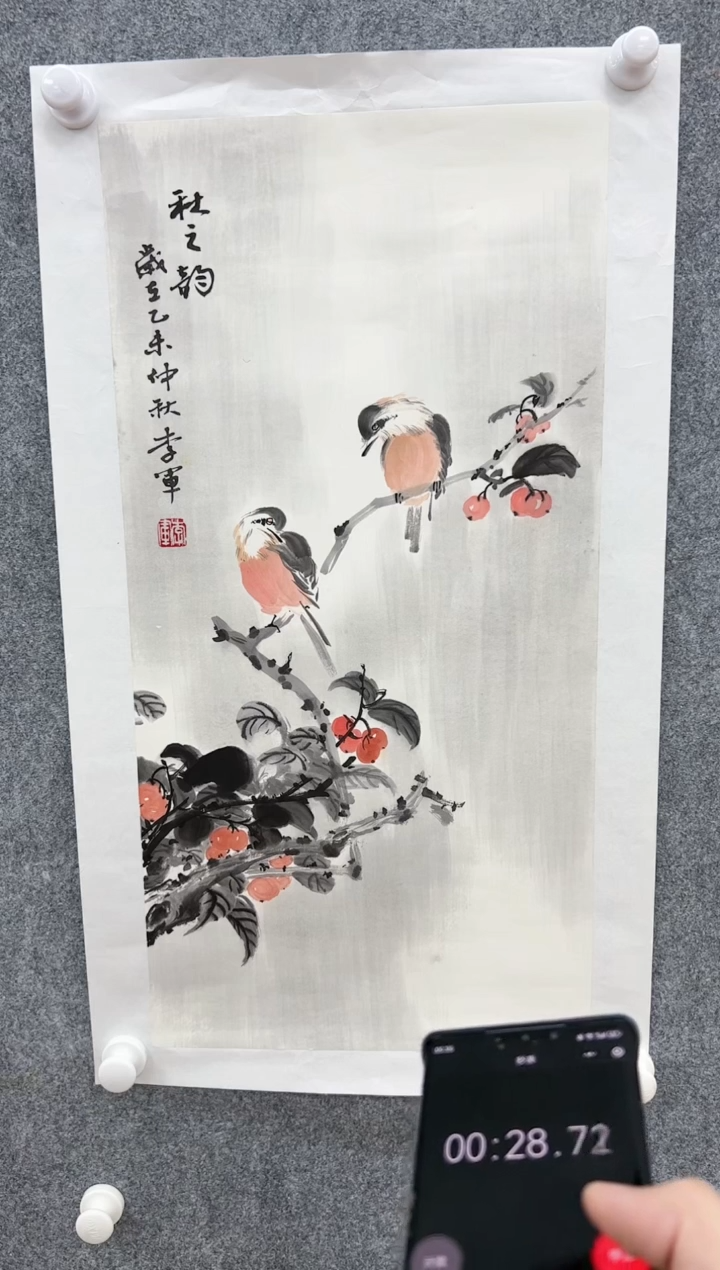 秋之韵
歲在乙未仲秋李軍
00:28.72